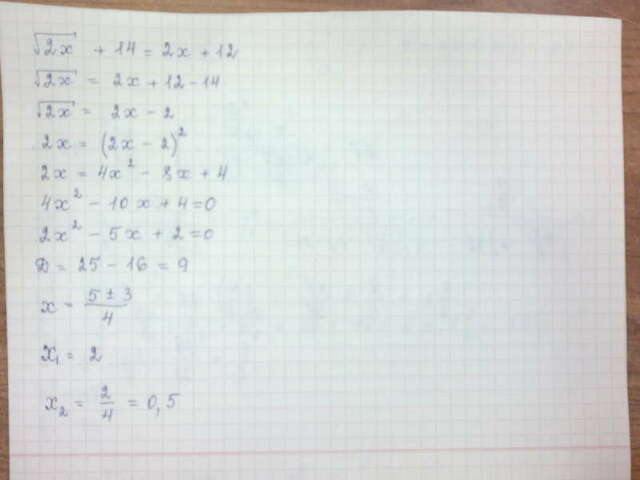 √2x + 14 = 2x + 12
√2x = 2x + 12 - 14
√2x = 2x - 2
2x = (2x - 2)²
2x = 4x² - 8x + 4
4x² - 10x + 4 = 0
2x² - 5x + 2 = 0
D = 25 - 16 = 9
x = (5 ± 3)/4
x₁ = 2
x₂ = 2/4 = 0,5